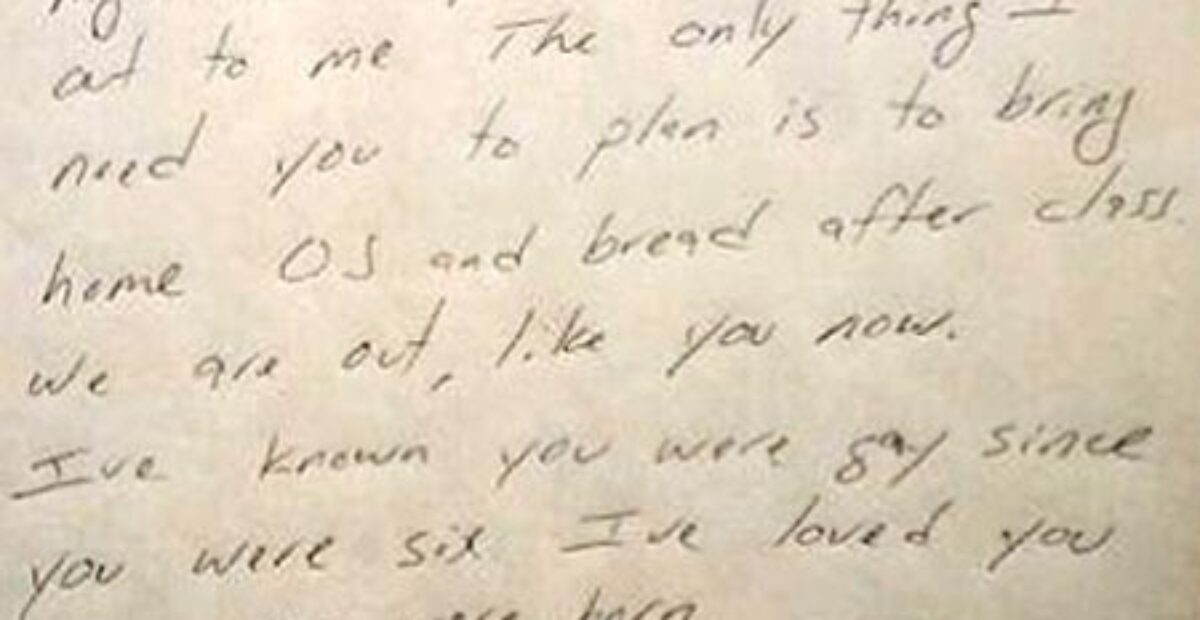 out to me The only thing I
need you to plan is to bring
home OJ and bread after class.
We are out, like you now.
I've known you were gay since
you were six I've loved you
born